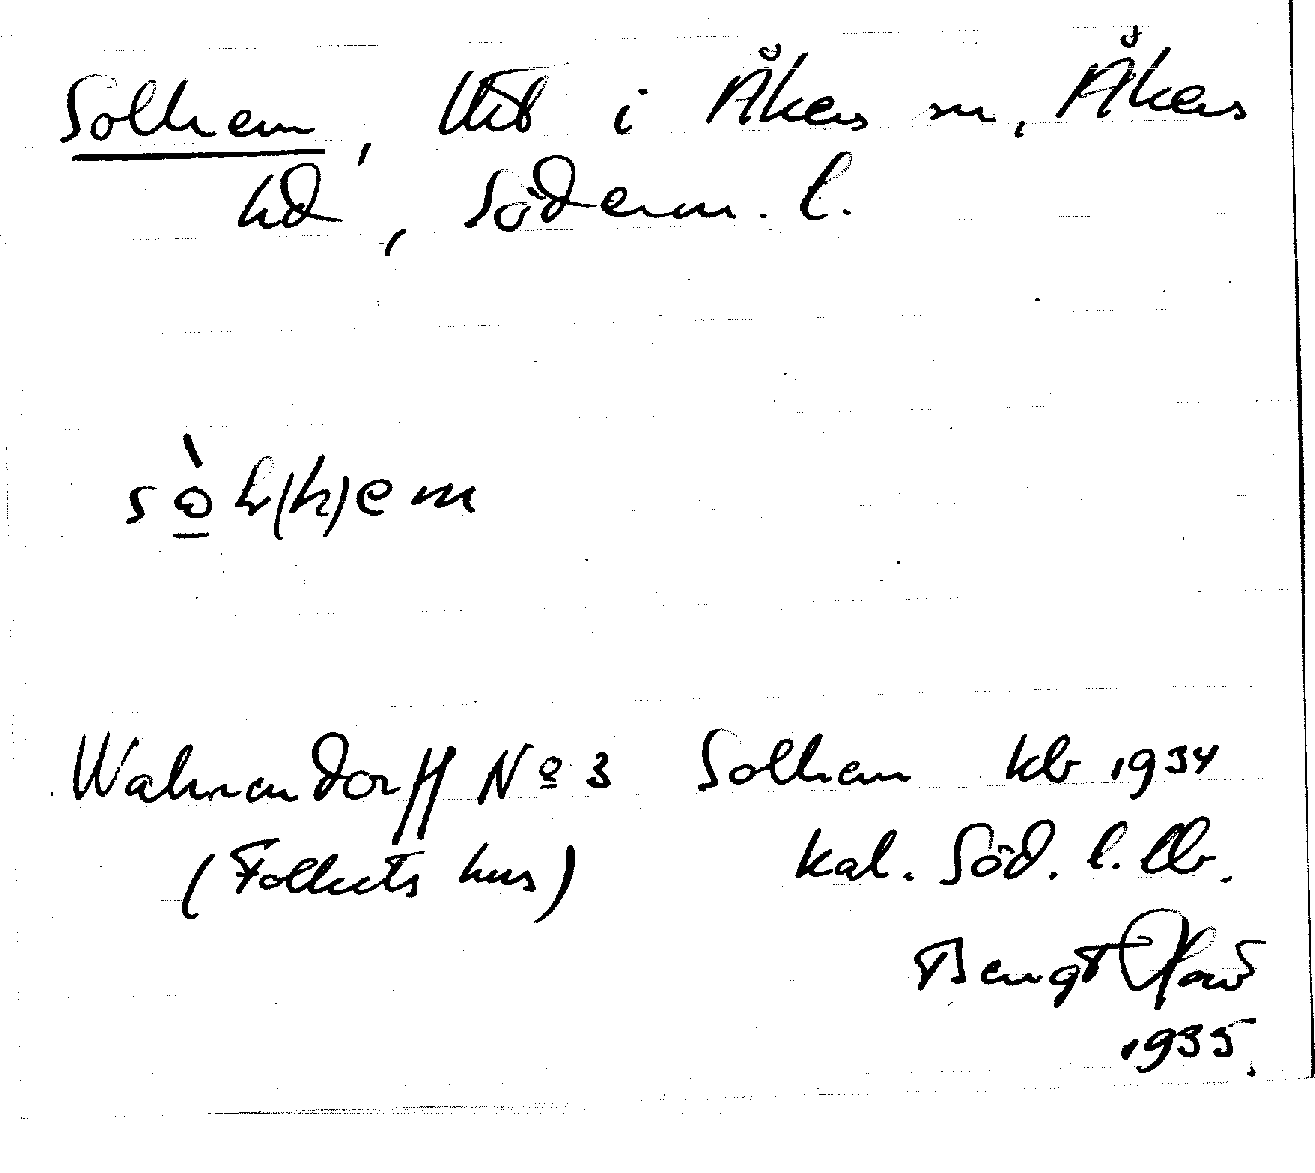 Solhem, lht i Åkers sn, Åkers
hd, Söderm. l.
sò̱l(h)em
Wahrendorff Nº 3 Solhem kb 1934
(Folkets hus) kal. Söd. l. lbr.
Bengt
1935.